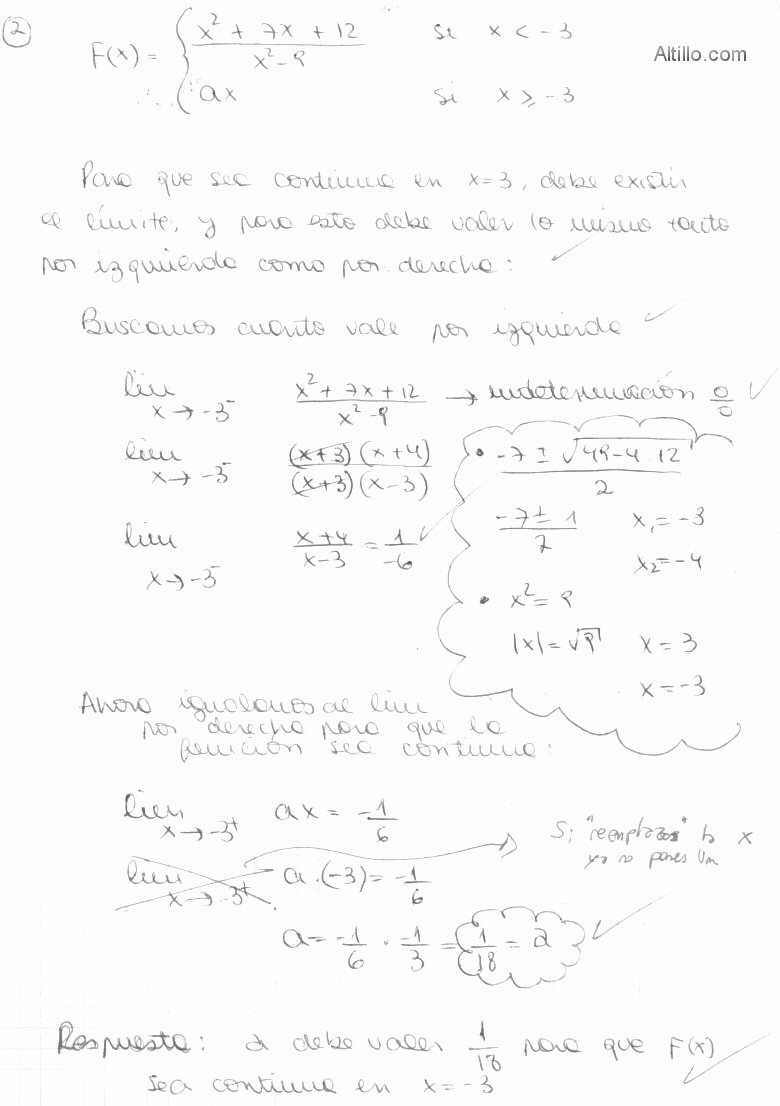 2
F(x) = { x² + 7x + 12 / x² - 9 si x < -3
Altillo.com
ax si x ≥ -3
Para que sea continua en x=3, debe existir
el límite, y para esto debe valer lo mismo tanto
por izquierda como por derecha:
Buscamos cuanto vale por izquierda
lim x→-3⁻ x² + 7x + 12 / x² - 9 → indeterminación 0/0
lim x→-3⁻ (x+3)(x+4) / (x+3)(x-3)
lim x→-3⁻ x+4 / x-3 = 1 / -6
• -7 ± √49-4.12 / 2
-7 ± 1 / 2 x₁ = -3
x₂ = -4
• x² = 9
|x| = √9 x = 3
x = -3
Ahora igualamos al lim
por derecha para que la
función sea continua:
lim x→-3⁺ ax = -1/6
Si "reemplazas" la x
ya no pones lim
lim x→-3⁺ a.(-3) = -1/6
a = -1/6 . -1/3 = 1/18 = a
Respuesta: a debe valer 1/18 para que F(x)
sea continua en x=-3